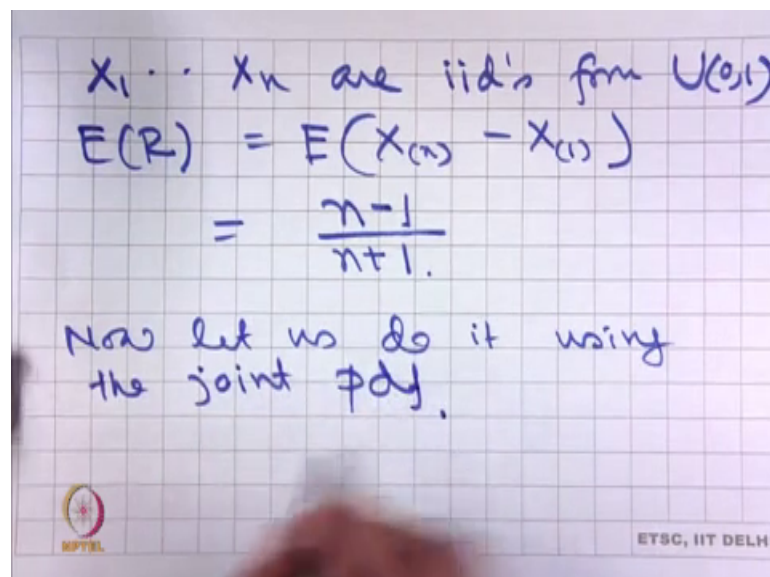 X₁ . . Xₙ are iid's from U(0,1)
E(R) = E(X₍ₙ₎ - X₍₁₎)
= n-1 / n+1.
Now let us do it using
the joint pdf.
NPTEL
ETSC, IIT DELH